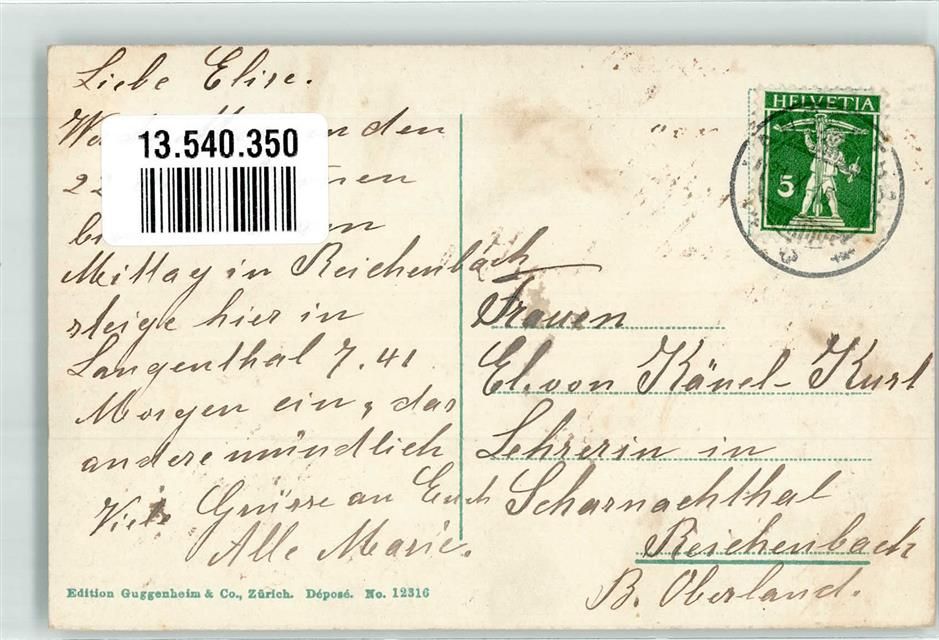 Liebe Elise.
den
13.540.350
22
Mittag in Reichenbach
steige hier in
Langenthal 7.41
Morgen ein, das
andere mündlich
Viele Grüsse an Euch
Alle Marie.
Edition Guggenheim & Co., Zürich. Déposé. No. 12316
HELVETIA
5
Frauen
El. von Känel-Kurt
Lehrerin in
Scharnachthal
Reichenbach
B. Oberland.